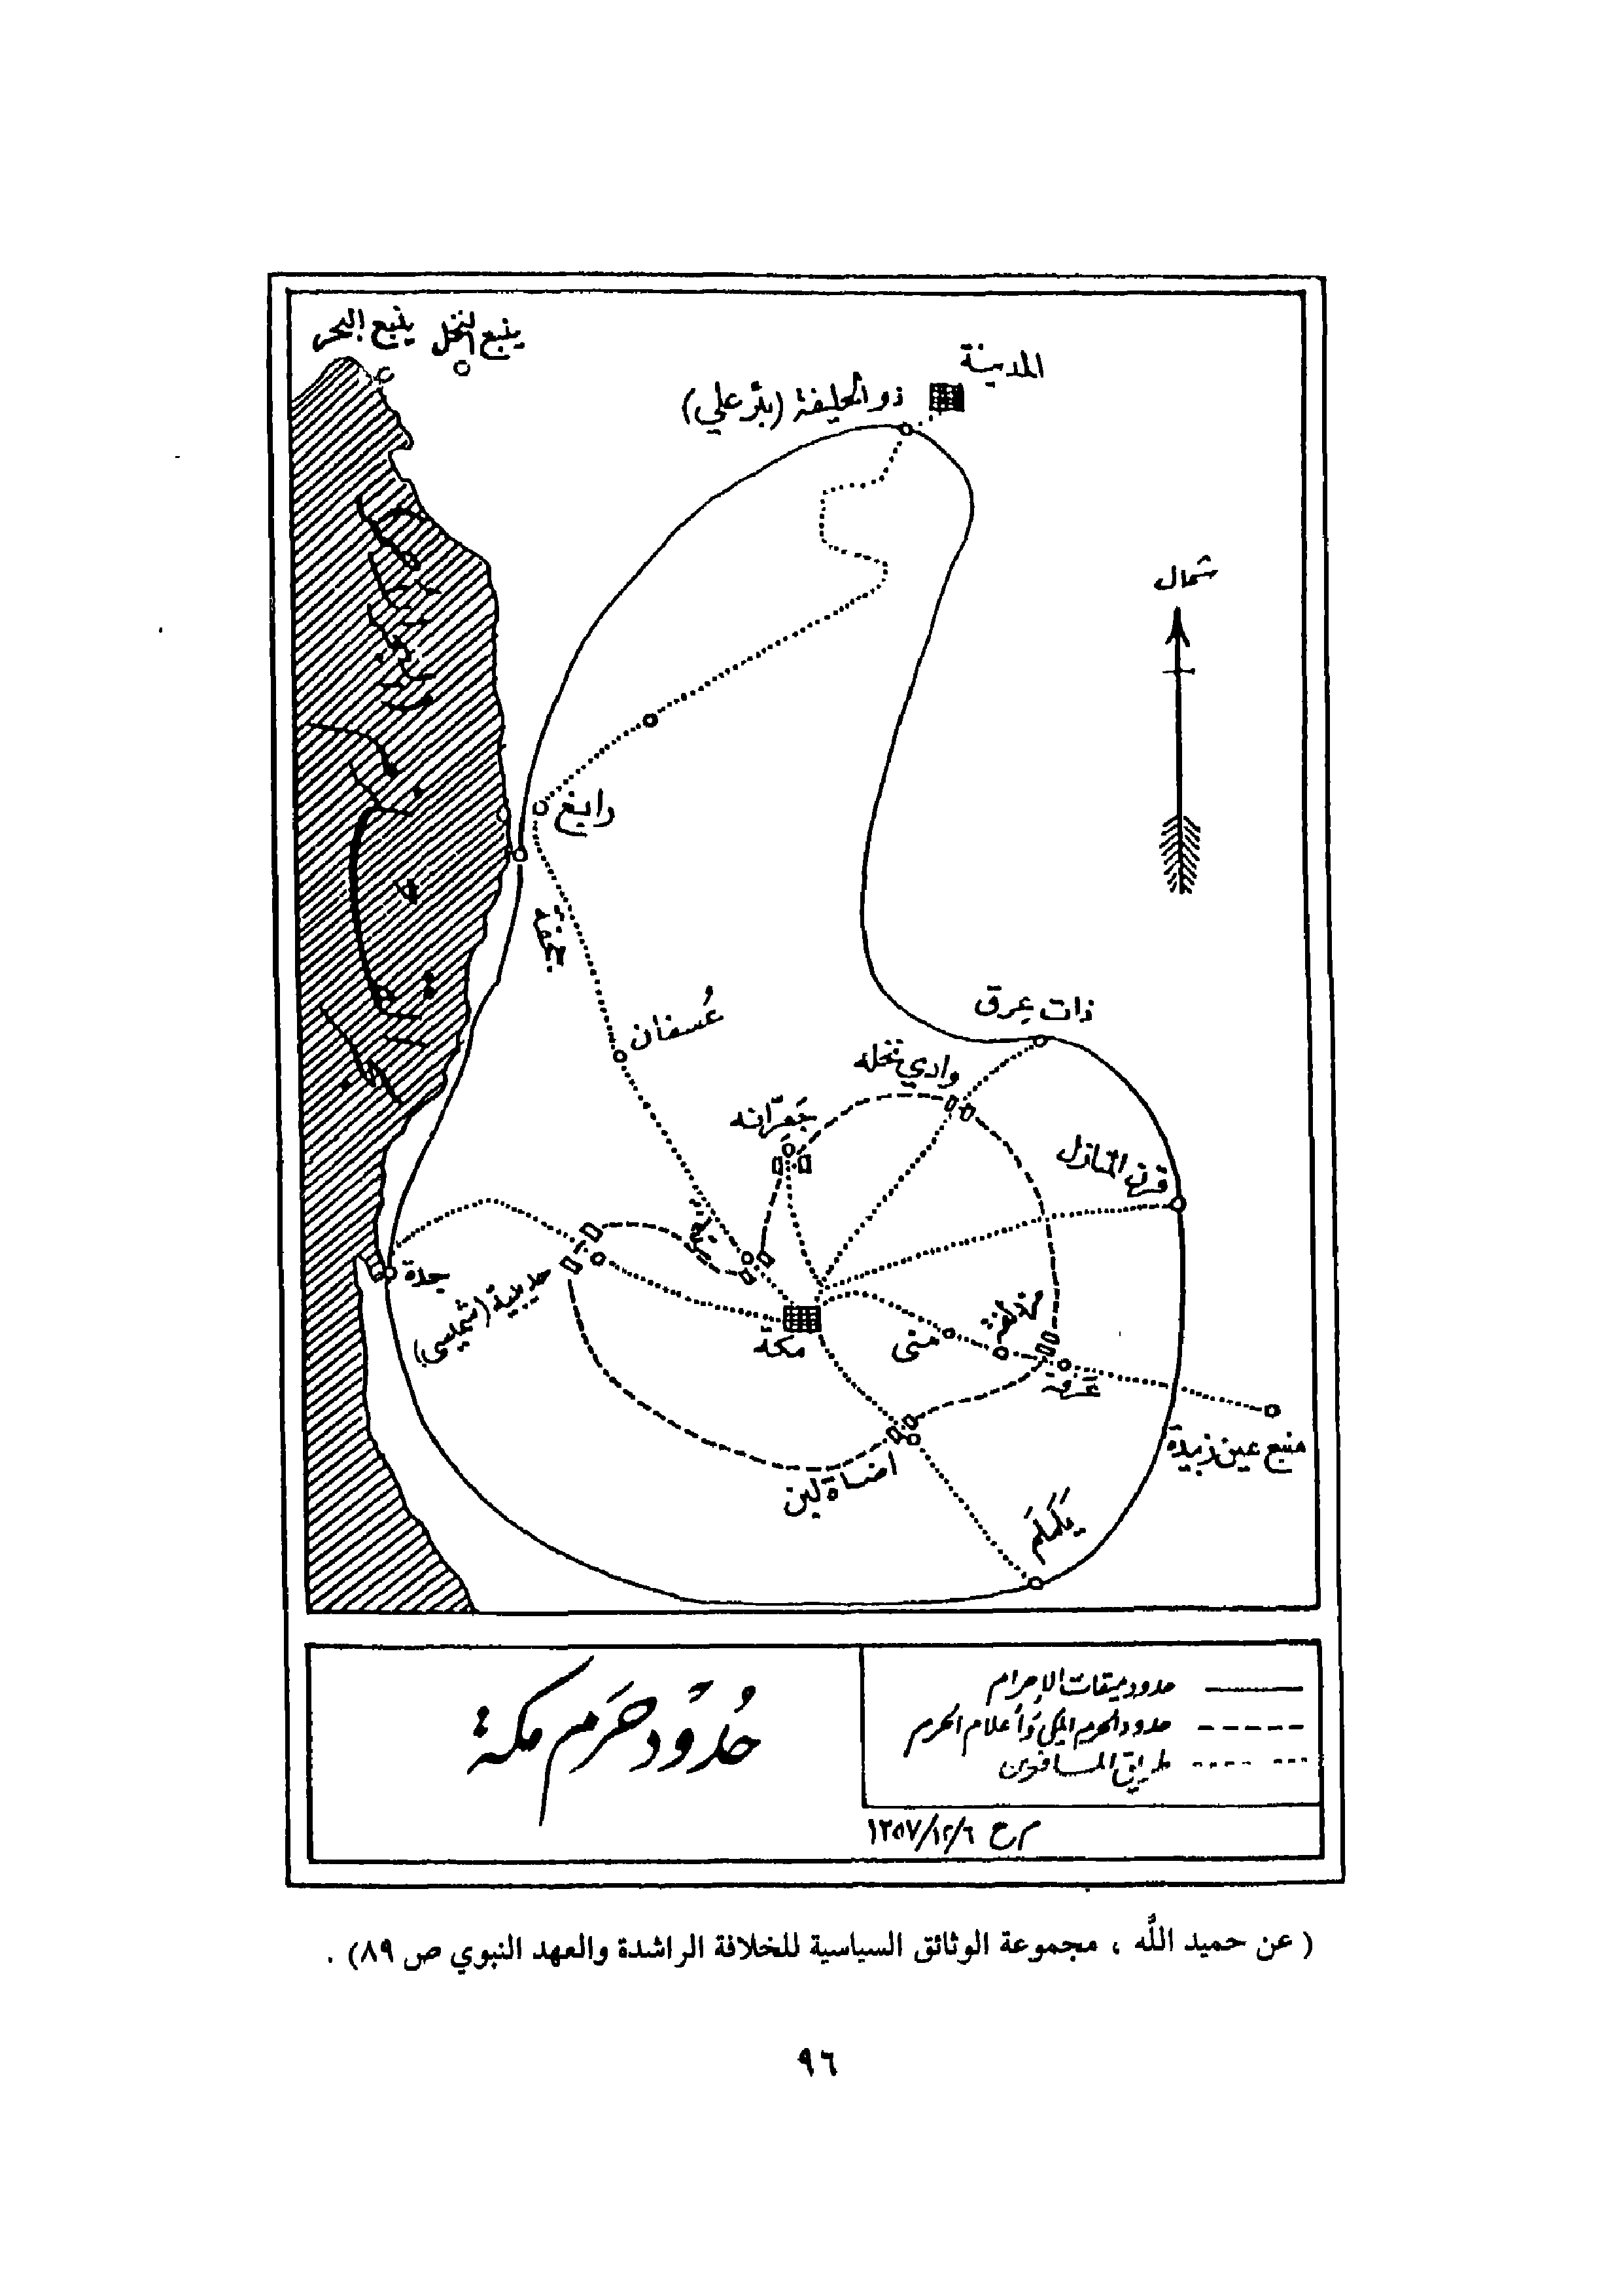 ينبع البحر
ينبع النخل
المدينة
ذو الحليفة (بئر علي)
شمال
رابغ
جحفة
عُسفان
ذات عرق
وادي نخله
جعرّانه
قرن المنازل
جدة
حديبية (شميسي)
مكة
منى
مزدلفة
عرفة
منبع عين زبيدة
اضاة لبن
يَلَملَم
حدود ميقات الإحرام
حدود الحرم المكي وأعلام الحرم
طريق المسافرين
حُدُود حَرَم مكة
م ح ١٣٥٧/١٢/٦
( عن حميد اللَّه ، مجموعة الوثائق السياسية للخلافة الراشدة والعهد النبوي ص ٨٩) .
٩٦